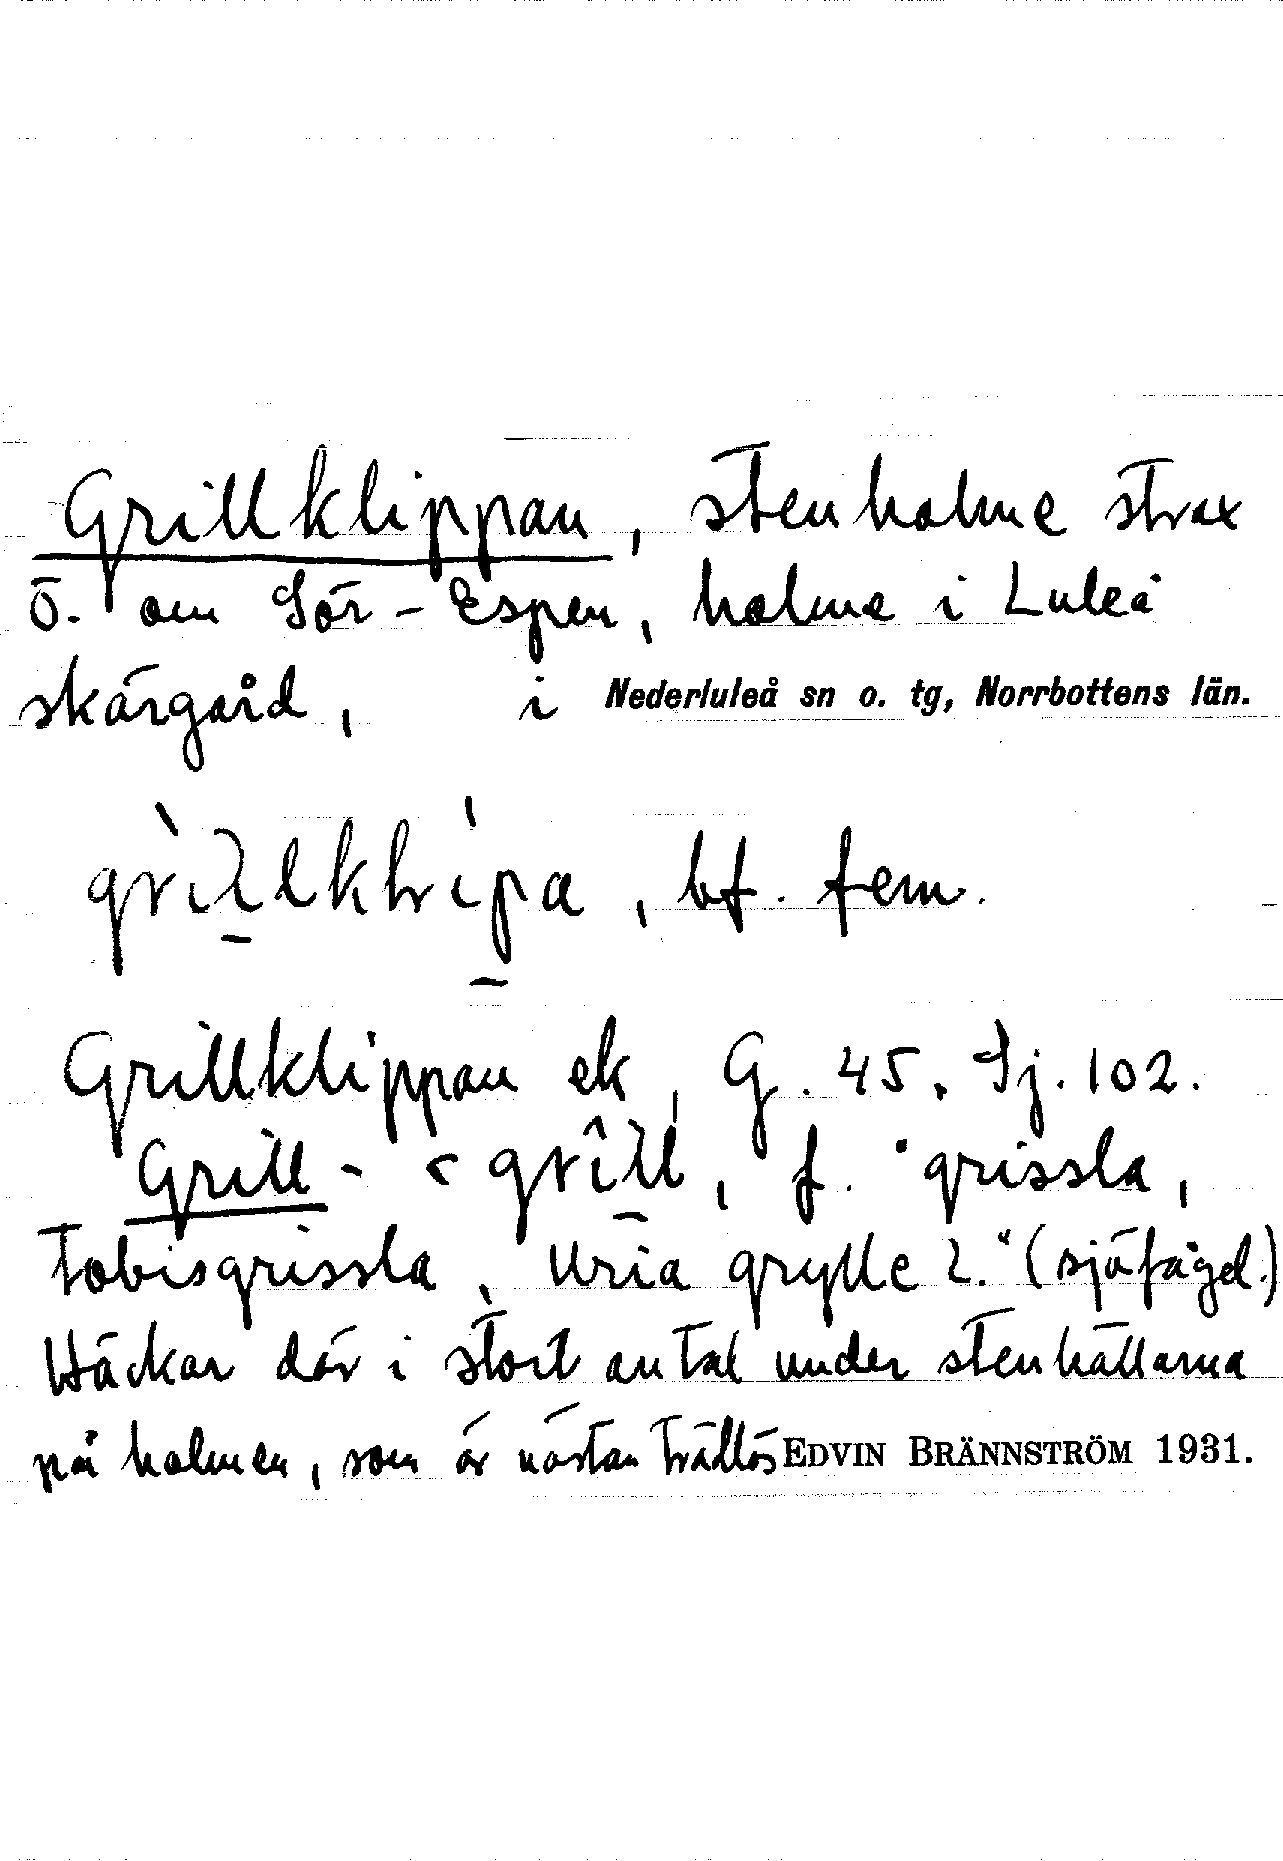 Grillklippan, stenholme strax
Ö. om Sör-Espen, holme i Luleå
skärgård, i Nederluleå sn o. tg, Norrbottens län.
, bf. fem.
Grillklippan ek, G. 45. Sj. 102.
Grill- < grill, f. "grissla,
tobisgrissla, Uria grylle L." (sjöfågel.)
Häckar där i stort antal under stenhällarna
på holmen, som är nästan trädlös EDVIN BRÄNNSTRÖM 1931.